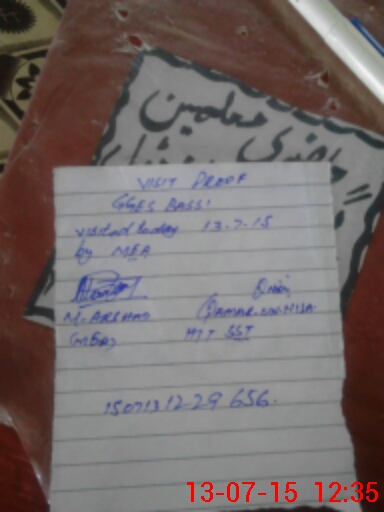 معلمین
حاضری
VISIT PROOF
GGES BASSI
visited today 13.7.15
by MEA
M. ARSHAD
QAMAR-UN-NISA
(MEA)
HTT SST
15071312 29 656.
13-07-15 12:35